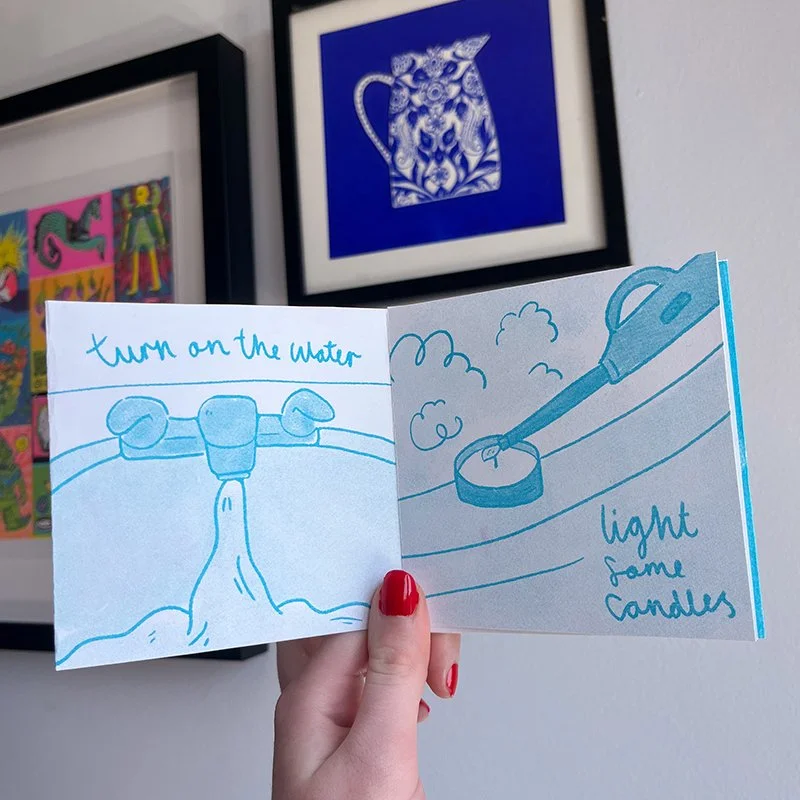 turn on the water
light
some
candles